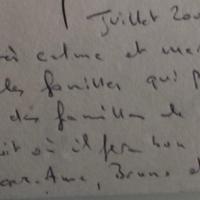 Juillet 200
calme et
les familles qui p
des familles de
où il fera bon
Anne, Bruno